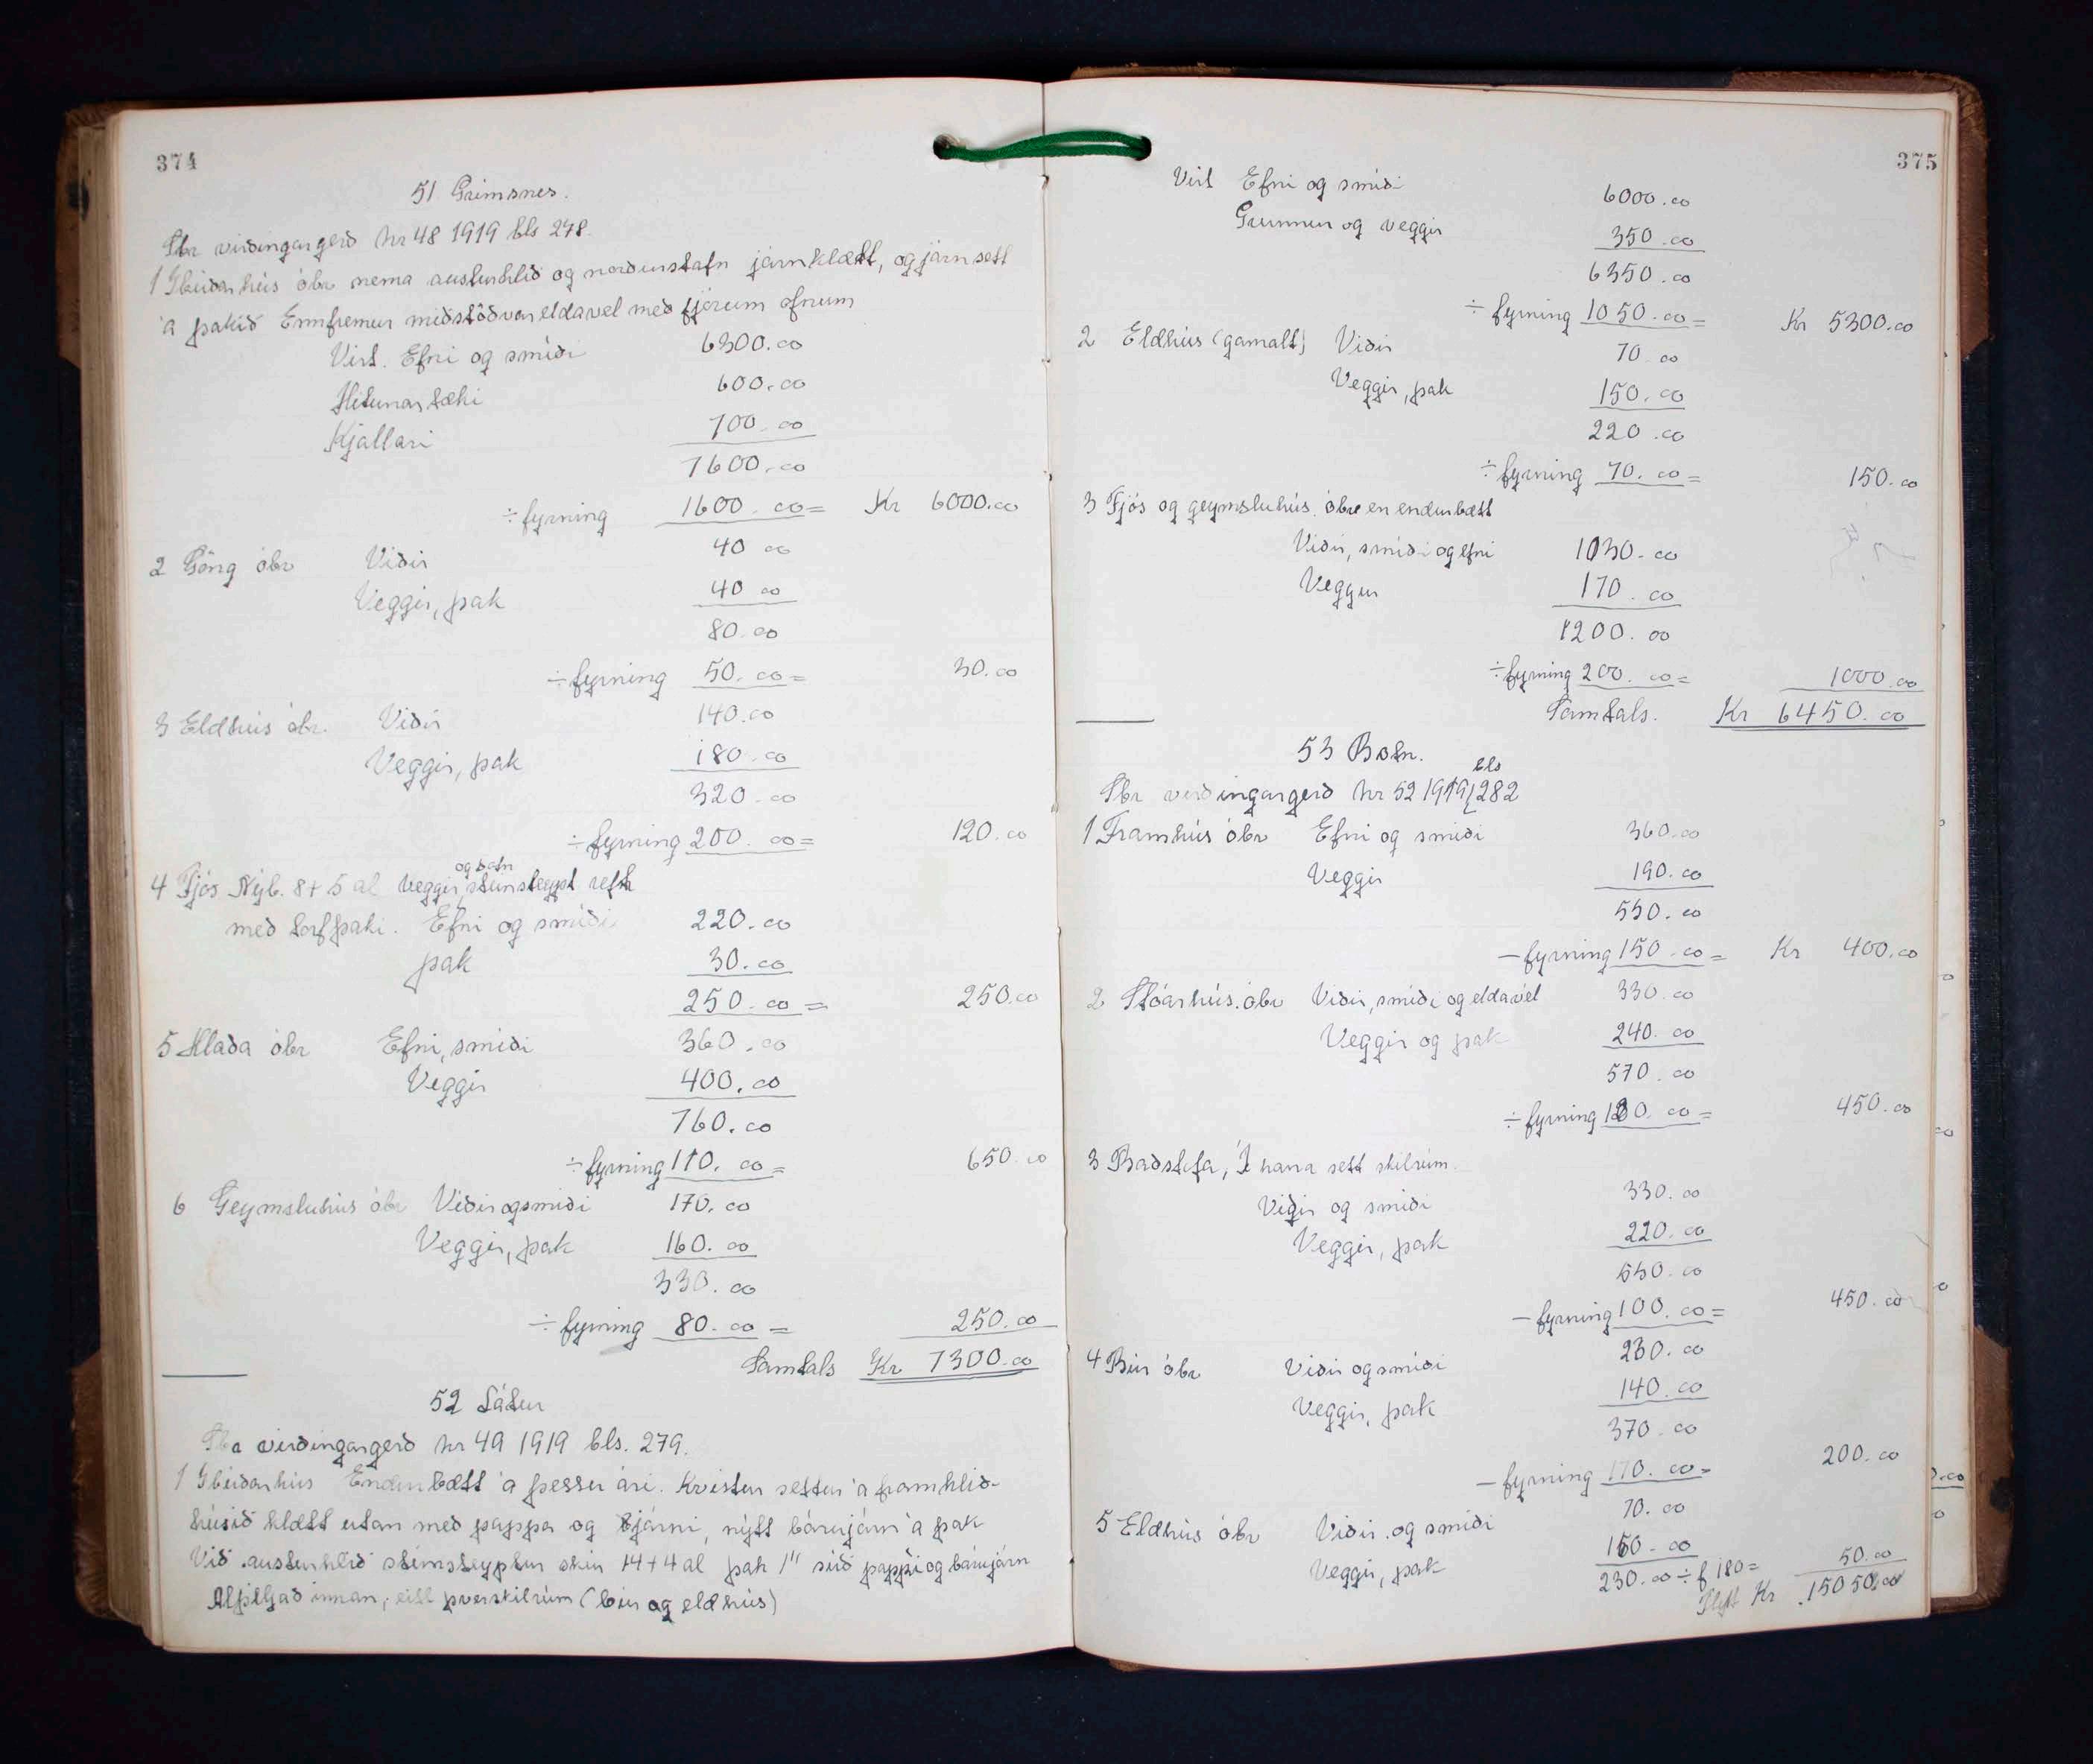 374
51 Grímsnes.
Sbr virðingargerð nr 48 1919 bls 278.
1 Íbúðarhús óbr nema austurhlið og norðurstafn járnklætt, og járn sett
á þakið Ennfremur miðstöðvareldavel með fjórum ofnum
Virt. Efni og smíði 6300.00
Hitunartæki 600.00
Kjallari 700.00
7600.00
÷ fyrning 1600.00 = Kr 6000.00
2 Göng óbr Viðir 40 00
Veggir, þak 40 00
80.00
÷ fyrning 50.00 = 30.00
3 Eldhús óbr. Viðir 140.00
Veggir, þak 180.00
320.00
÷ fyrning 200.00 = 120.00
og stafn
4 Fjós Nýb. 8+5 al Veggir, steinsteypt reft
með torfþaki. Efni og smíði 220.00
þak 30.00
250.00 = 250.00
5 Hlaða óbr Efni, smíði 360.00
Veggir 400.00
760.00
÷ fyrning 110.00 = 650.00
6 Geymsluhús óbr Viðir og smíði 170.00
Veggir, þak 160.00
330.00
÷ fyrning 80.00 = 250.00
Samtals Kr 7300.00
52 Látur
Sbr virðingargerð nr 49 1919 bls. 279.
1 Íbúðarhús Endurbætt á þessu ári. Kvistur settur á framhlið-
húsið klætt utan með pappa og járni, nýtt bárujárn á þak
Við austurhlið steinsteyptur skúr 14+4 al þak 1" súð pappi og bárujárn
Alþiljað innan, eitt þverskilrúm (búr og eldhús)
375
Virt Efni og smíði 6000.00
Grunnur og veggir 350.00
6350.00
÷ fyrning 1050.00 = Kr 5300.00
2 Eldhús (gamalt) Viðir 70 00
Veggir, þak 150.00
220.00
÷ fyrning 70.00 = 150.00
3 Fjós og geymsluhús óbr en endurbætt
Viðir, smíði og efni 1030.00
Veggir 170.00
1200.00
÷ fyrning 200.00 = 1000.00
Samtals. Kr 6450.00
53 Botn.
bls
Sbr virðingargerð nr 52 1919 282
1 Framhús óbr Efni og smíði 360.00
Veggir 190.00
550.00
— fyrning 150.00 = Kr 400.00
2 Stóarhús óbr Viðir, smíði og eldavél 330.00
Veggir og þak 240.00
570.00
÷ fyrning 120.00 = 450.00
3 Baðstofa, Í hana sett skilrúm.
Viðir og smíði 330.00
Veggir, þak 220.00
550.00
— fyrning 100.00 = 450.00
4 Búr óbr Viðir og smíði 230.00
Veggir, þak 140.00
370.00
— fyrning 170.00 = 200.00
5 Eldhús óbr Viðir og smíði 70.00
Veggir, þak 160.00
230.00 ÷ f 180 = 50.00
Flyt Kr 1550.00